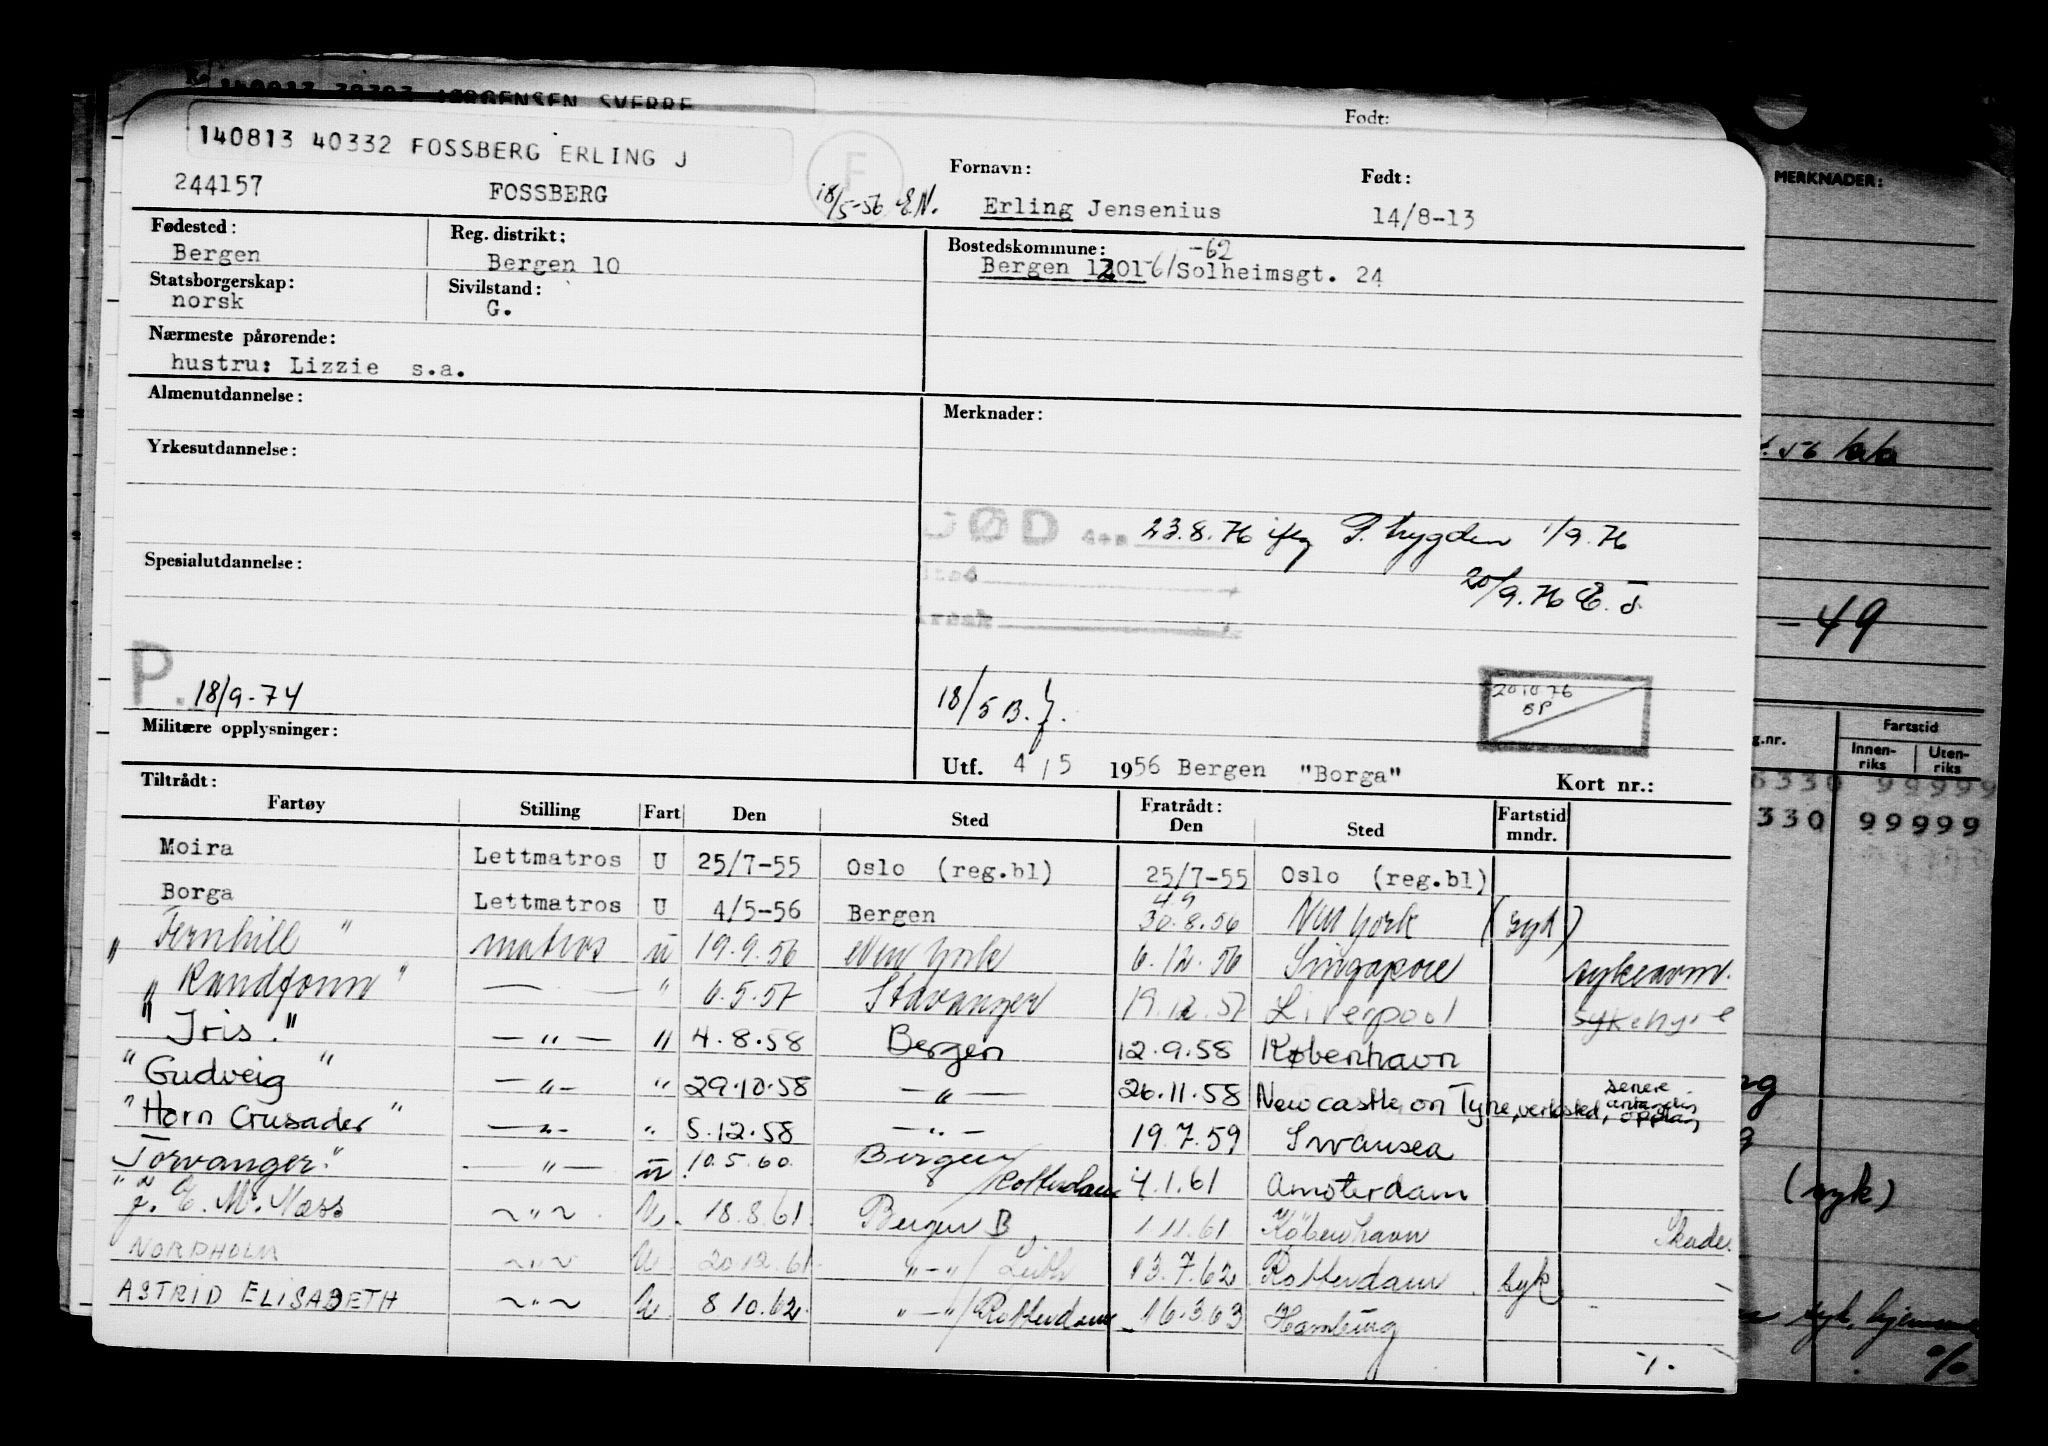 140813 40332 FOSSBERG ERLING J
F
Født:
244157 FOSSBERG 18/5-56 E.N. Fornavn: Erling Jensenius Født: 14/8-13
Fødested: Bergen
Reg. distrikt: Bergen 10
Bostedskommune: -62
Bergen 1201-61 Solheimsgt. 24
Statsborgerskap: norsk
Sivilstand: G.
Nærmeste pårørende:
hustru: Lizzie s.a.
Almenutdannelse:
Merknader:
Yrkesutdannelse:
DØD den 23.8.76 iflg P. trygden 1/9.76
20/9.76
Spesialutdannelse:
P. 18/9-74
18/5 B.J.
20 10 76
BP
Militære opplysninger:
Utf. 4/5 1956 Bergen "Borga" Kort nr.:
Tiltrådt: Fratrådt:
Fartøy Stilling Fart Den Sted Den Sted Fartstid mndr.
Moira Lettmatros U 25/7-55 Oslo (reg.bl) 25/7-55 Oslo (reg.bl)
Borga Lettmatros U 4/5-56 Bergen 30.8.56 New York (syk)
"Fernhill" matros u 19.9.56 New York 6.12.56 Singapore sykeavm.
"Randfonn" — " — " 6.5.57 Stavanger 19.12.57 Liverpool sykehyre
"Iris." — " — " 4.8.58 Bergen 12.9.58 København
"Gudveig" — " — " 29.10.58 — " — 26.11.58 Newcastle on Tyne, verksted, senere antagelig opplag
"Horn Crusader" — " — " 5.12.58 — " — 19.7.59 Swansea
"Torvanger" — " — u 10.5.60 Bergen/Rotterdam 4.1.61 Amsterdam
"J. E. M. Næss ~ " ~ U. 18.8.61. Bergen B 1.11.61 København Skade.
NORDHOLM ~ " ~ U 20.12.61 " — " / Leith 13.7.62 Rotterdam syk
ASTRID ELISABETH ~ " ~ U. 8 10.62 " — " / Rotterdam 16.3.63 Hamburg
-/.
MERKNADER:
-49
Fartstid
Innen-riks Uten-riks
330 99999
(syk)
syk, hjemsendt
%